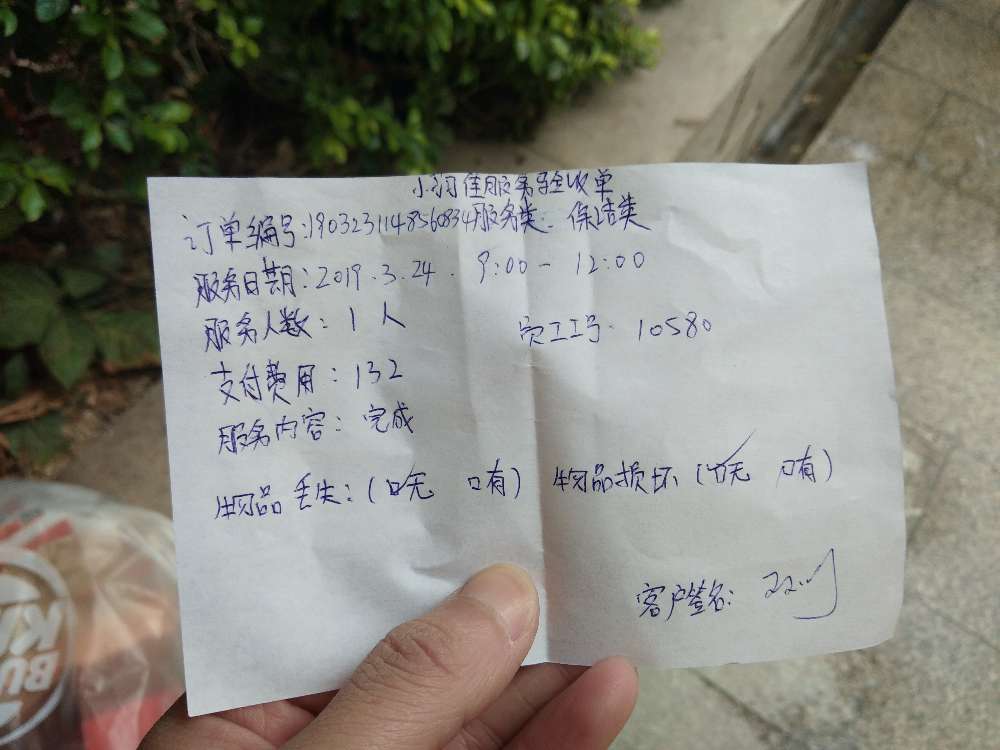 小羽佳服务验收单
订单编号:1903231148560834服务类:保洁类
服务日期:2019.3.24. 9:00-12:00
服务人数:1人 员工工号·10580
支付费用:132
服务内容:完成
物品丢失:(口无 口有) 物品损坏(口无 口有)
客户签名:
BU
KI